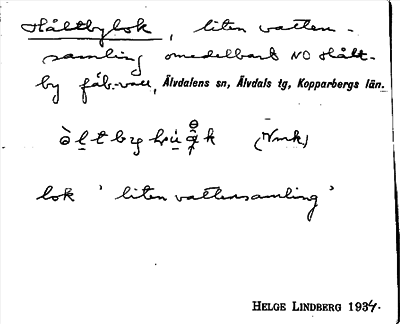 Håltbylok, liten vatten-
samling omedelbart NO Hålt-
by fäb.-vall, Älvdalens sn, Älvdals tg, Kopparbergs län.
lok 'liten vattensamling'
HELGE LINDBERG 1934.